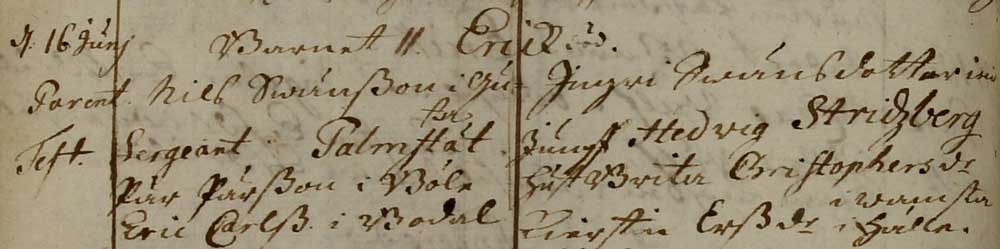 d. 16 Junj Barnet 11. Erick
Parent. Nils Swänßon i Gu- Ingri Swänsdotter
sta
Test. Sergeant Palmstät. Jungf Hedvig Stridzberg
Pär Pärßon i Böle hust Brita Christophersdr
i wamsta
Eric Carlß. i Bodal Kierstin Erßdr i Hälle.